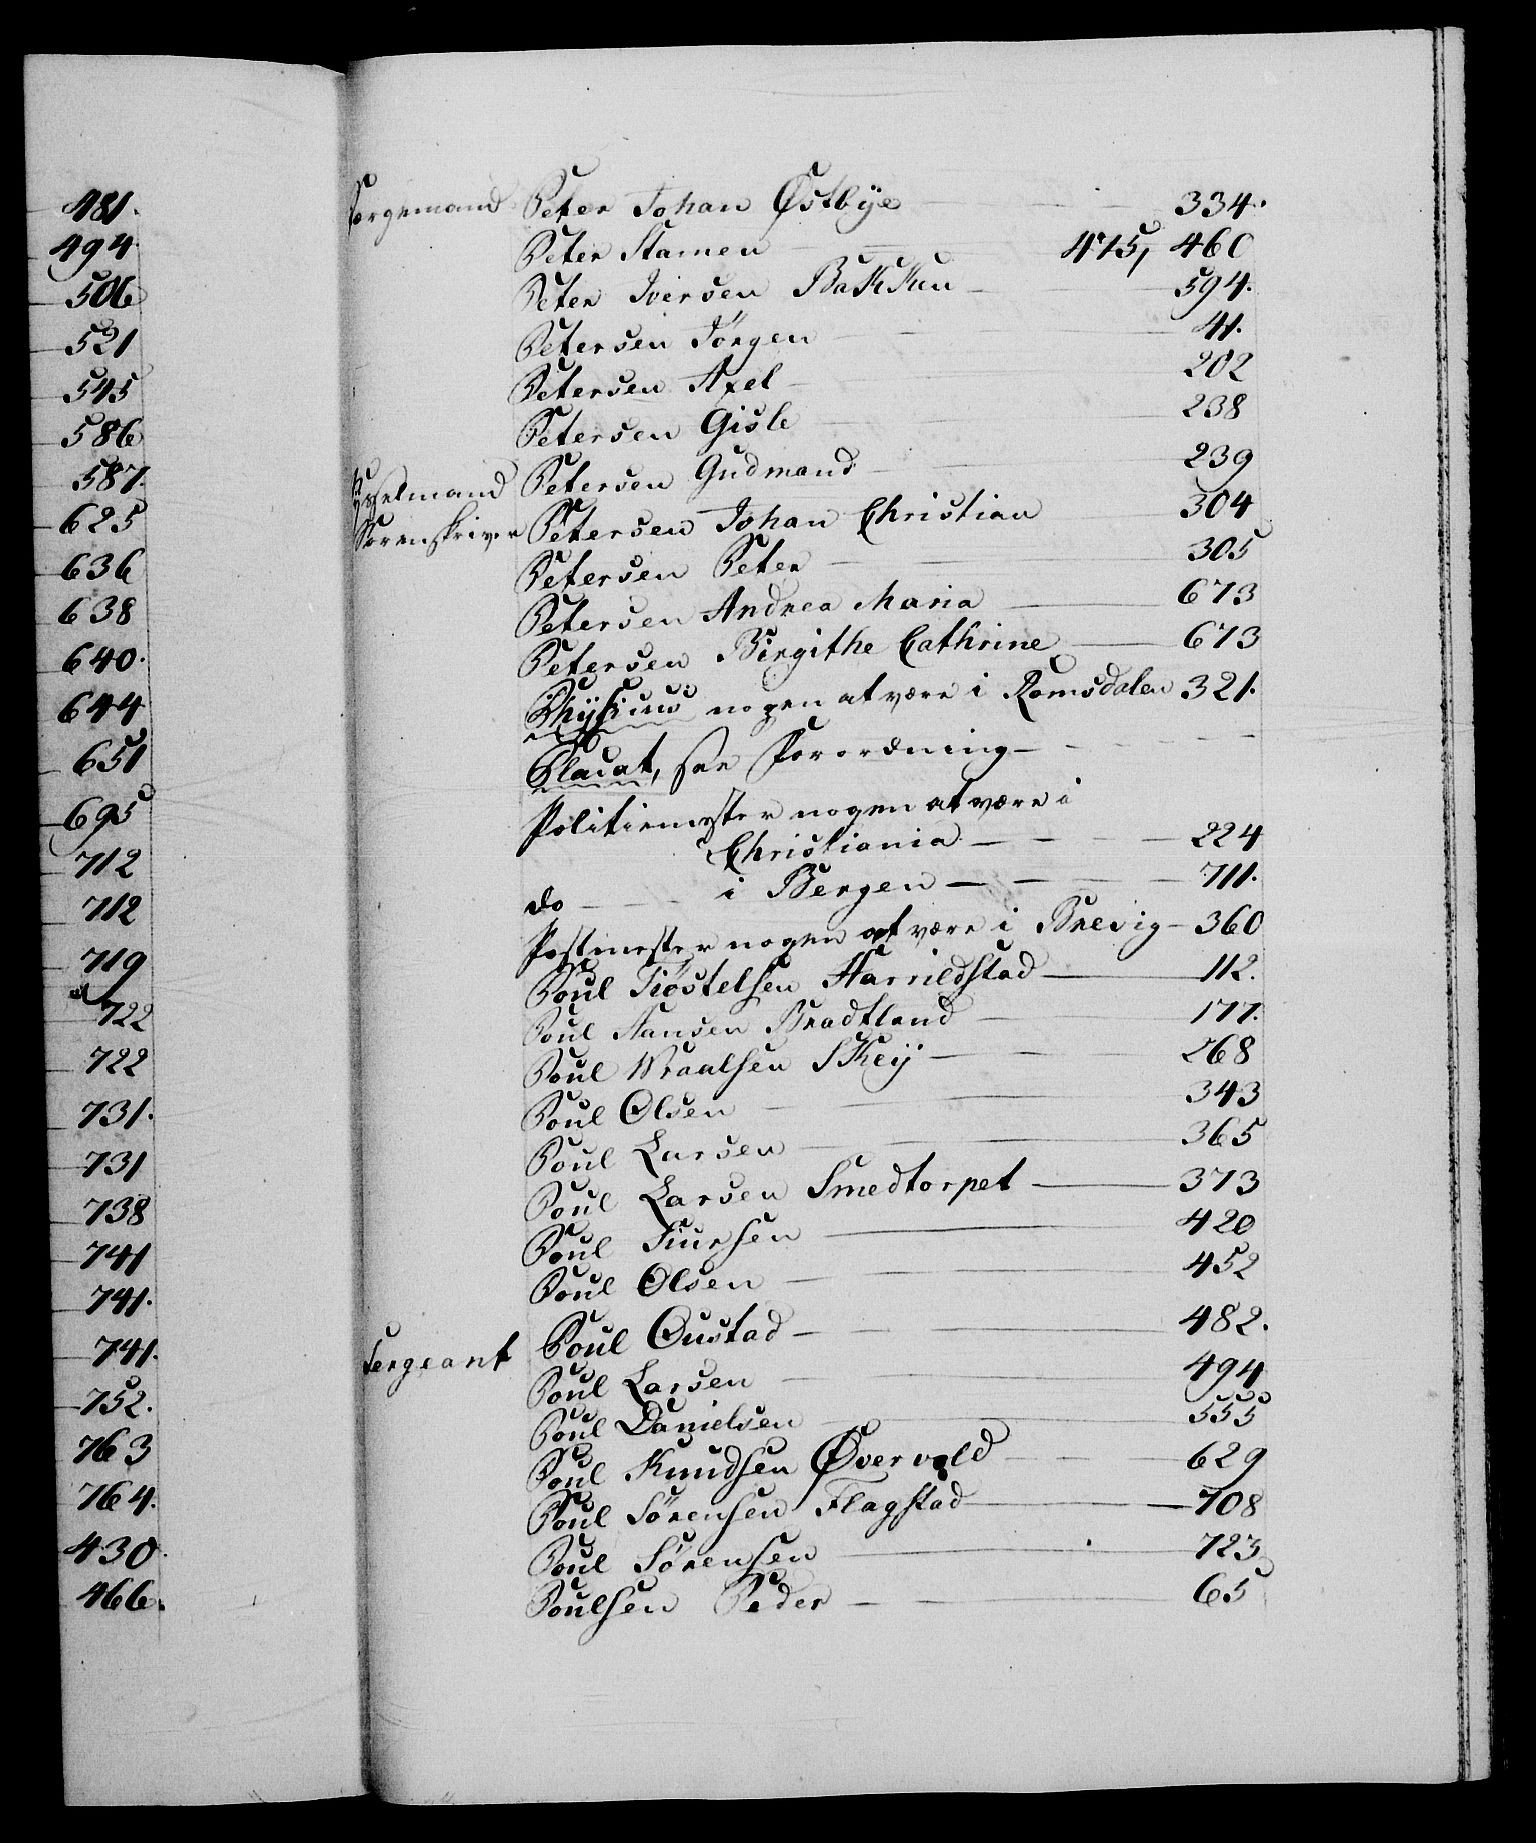 481.
494.
506
521
545
586
587.
625
636
638
640.
644
651
695
712
712
719
722
722
731.
731
738
741
741.
741.
752.
763
764.
430.
466.
Sorgemand Peter Johan Østbÿe 334.
Peter Stamen 415, 460
Peter Iversen Bakken 594.
Petersen Jörgen 41.
Petersen Axel 202
Petersen Gisle 238
Petersen Gudmand 239
Sorenskriver Petersen Johan Christian 304
Petersen Peter 305
Petersen Andrea Maria 673
Petersen Birgithe Cathrine 673
Physicus nogen at være i Romsdalen 321.
Placat, see Forordning
Politiemester nogen at være i
Christiania 224
do i Bergen 711.
Postmester nogen at være i Brevig 360
Poul Tiöstelsen Harrildstad 112.
Poul Hansen Bradtland 177.
Poul Wraalsen Skeij 268
Poul Olsen 343
Poul Larsen 365
Poul Larsen Smedtorpet 373
Poul Siursen 420
Poul Olsen 452
Sergeant Poul Oustad 482.
Poul Larsen 494
Poul Danielsen 555
Poul Knudsen Øvervold 629
Poul Sörensen Flagstad 708
Poul Sörensen 723
Poulsen Peder 65